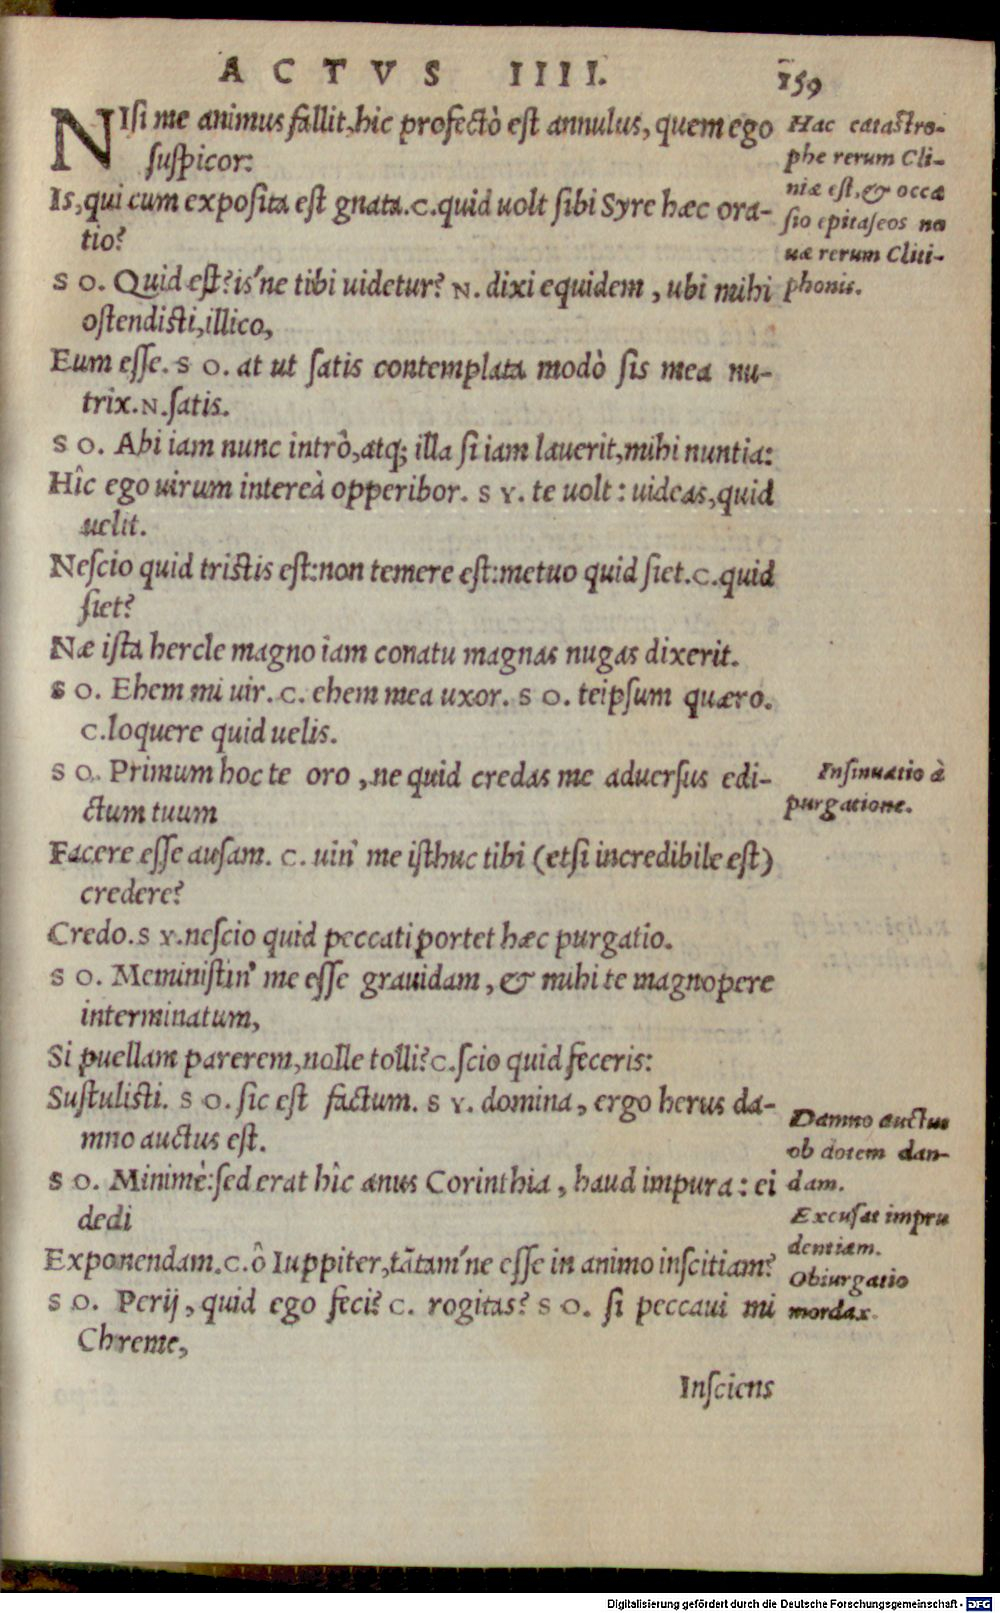 ACTVS IIII. 159
NIsi me animus fallit, hic profectò est annulus, quem ego
suspicor:
Is, qui cum exposita est gnata. C. quid uolt sibi Syre hæc ora-
tio?
S O. Quid est? is'ne tibi uidetur? N. dixi equidem, ubi mihi
ostendisti, illico,
Eum esse. S O. at ut satis contemplata modò sis mea nu-
trix. N. satis.
S O. Abi iam nunc intrò, atq; illa si iam lauerit, mihi nuntia:
Hîc ego uirum intereà opperibor. S Y. te uolt: uideas, quid
uelit.
Nescio quid tristis est: non temere est: metuo quid siet. C. quid
siet?
Næ ista hercle magno iam conatu magnas nugas dixerit.
S O. Ehem mi uir. C. ehem mea uxor. S O. teipsum quæro.
C. loquere quid uelis.
S O. Primum hoc te oro, ne quid credas me aduersus edi-
ctum tuum
Facere esse ausam. C. uin' me isthuc tibi (etsi incredibile est)
credere?
Credo. S Y. nescio quid peccati portet hæc purgatio.
S O. Meministin' me esse grauidam, & mihi te magnopere
interminatum,
Si puellam parerem, nolle tolli? C. scio quid feceris:
Sustulisti. S O. sic est factum. S Y. domina, ergo herus da-
mno auctus est.
S O. Minimè: sed erat hîc anus Corinthia, haud impura: ei
dedi
Exponendam. C. ô Iuppiter, tātam'ne esse in animo inscitiam?
S O. Perij, quid ego feci? C. rogitas? S O. si peccaui mi
Chreme,
Insciens
Hac catastro-
phe rerum Cli-
niæ est, & occa
sio epitaseos no
uæ rerum Cliti-
phonis.
Insinuatio à
purgatione.
Damno auctus
ob dotem dan-
dam.
Excusat impru
dentiam.
Obiurgatio
mordax.
Digitalisierung gefördert durch die Deutsche Forschungsgemeinschaft - DFG